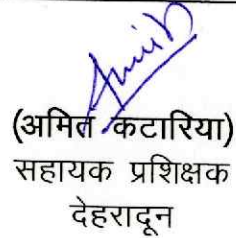 Amit
(अमित कटारिया)
सहायक प्रशिक्षक
देहरादून